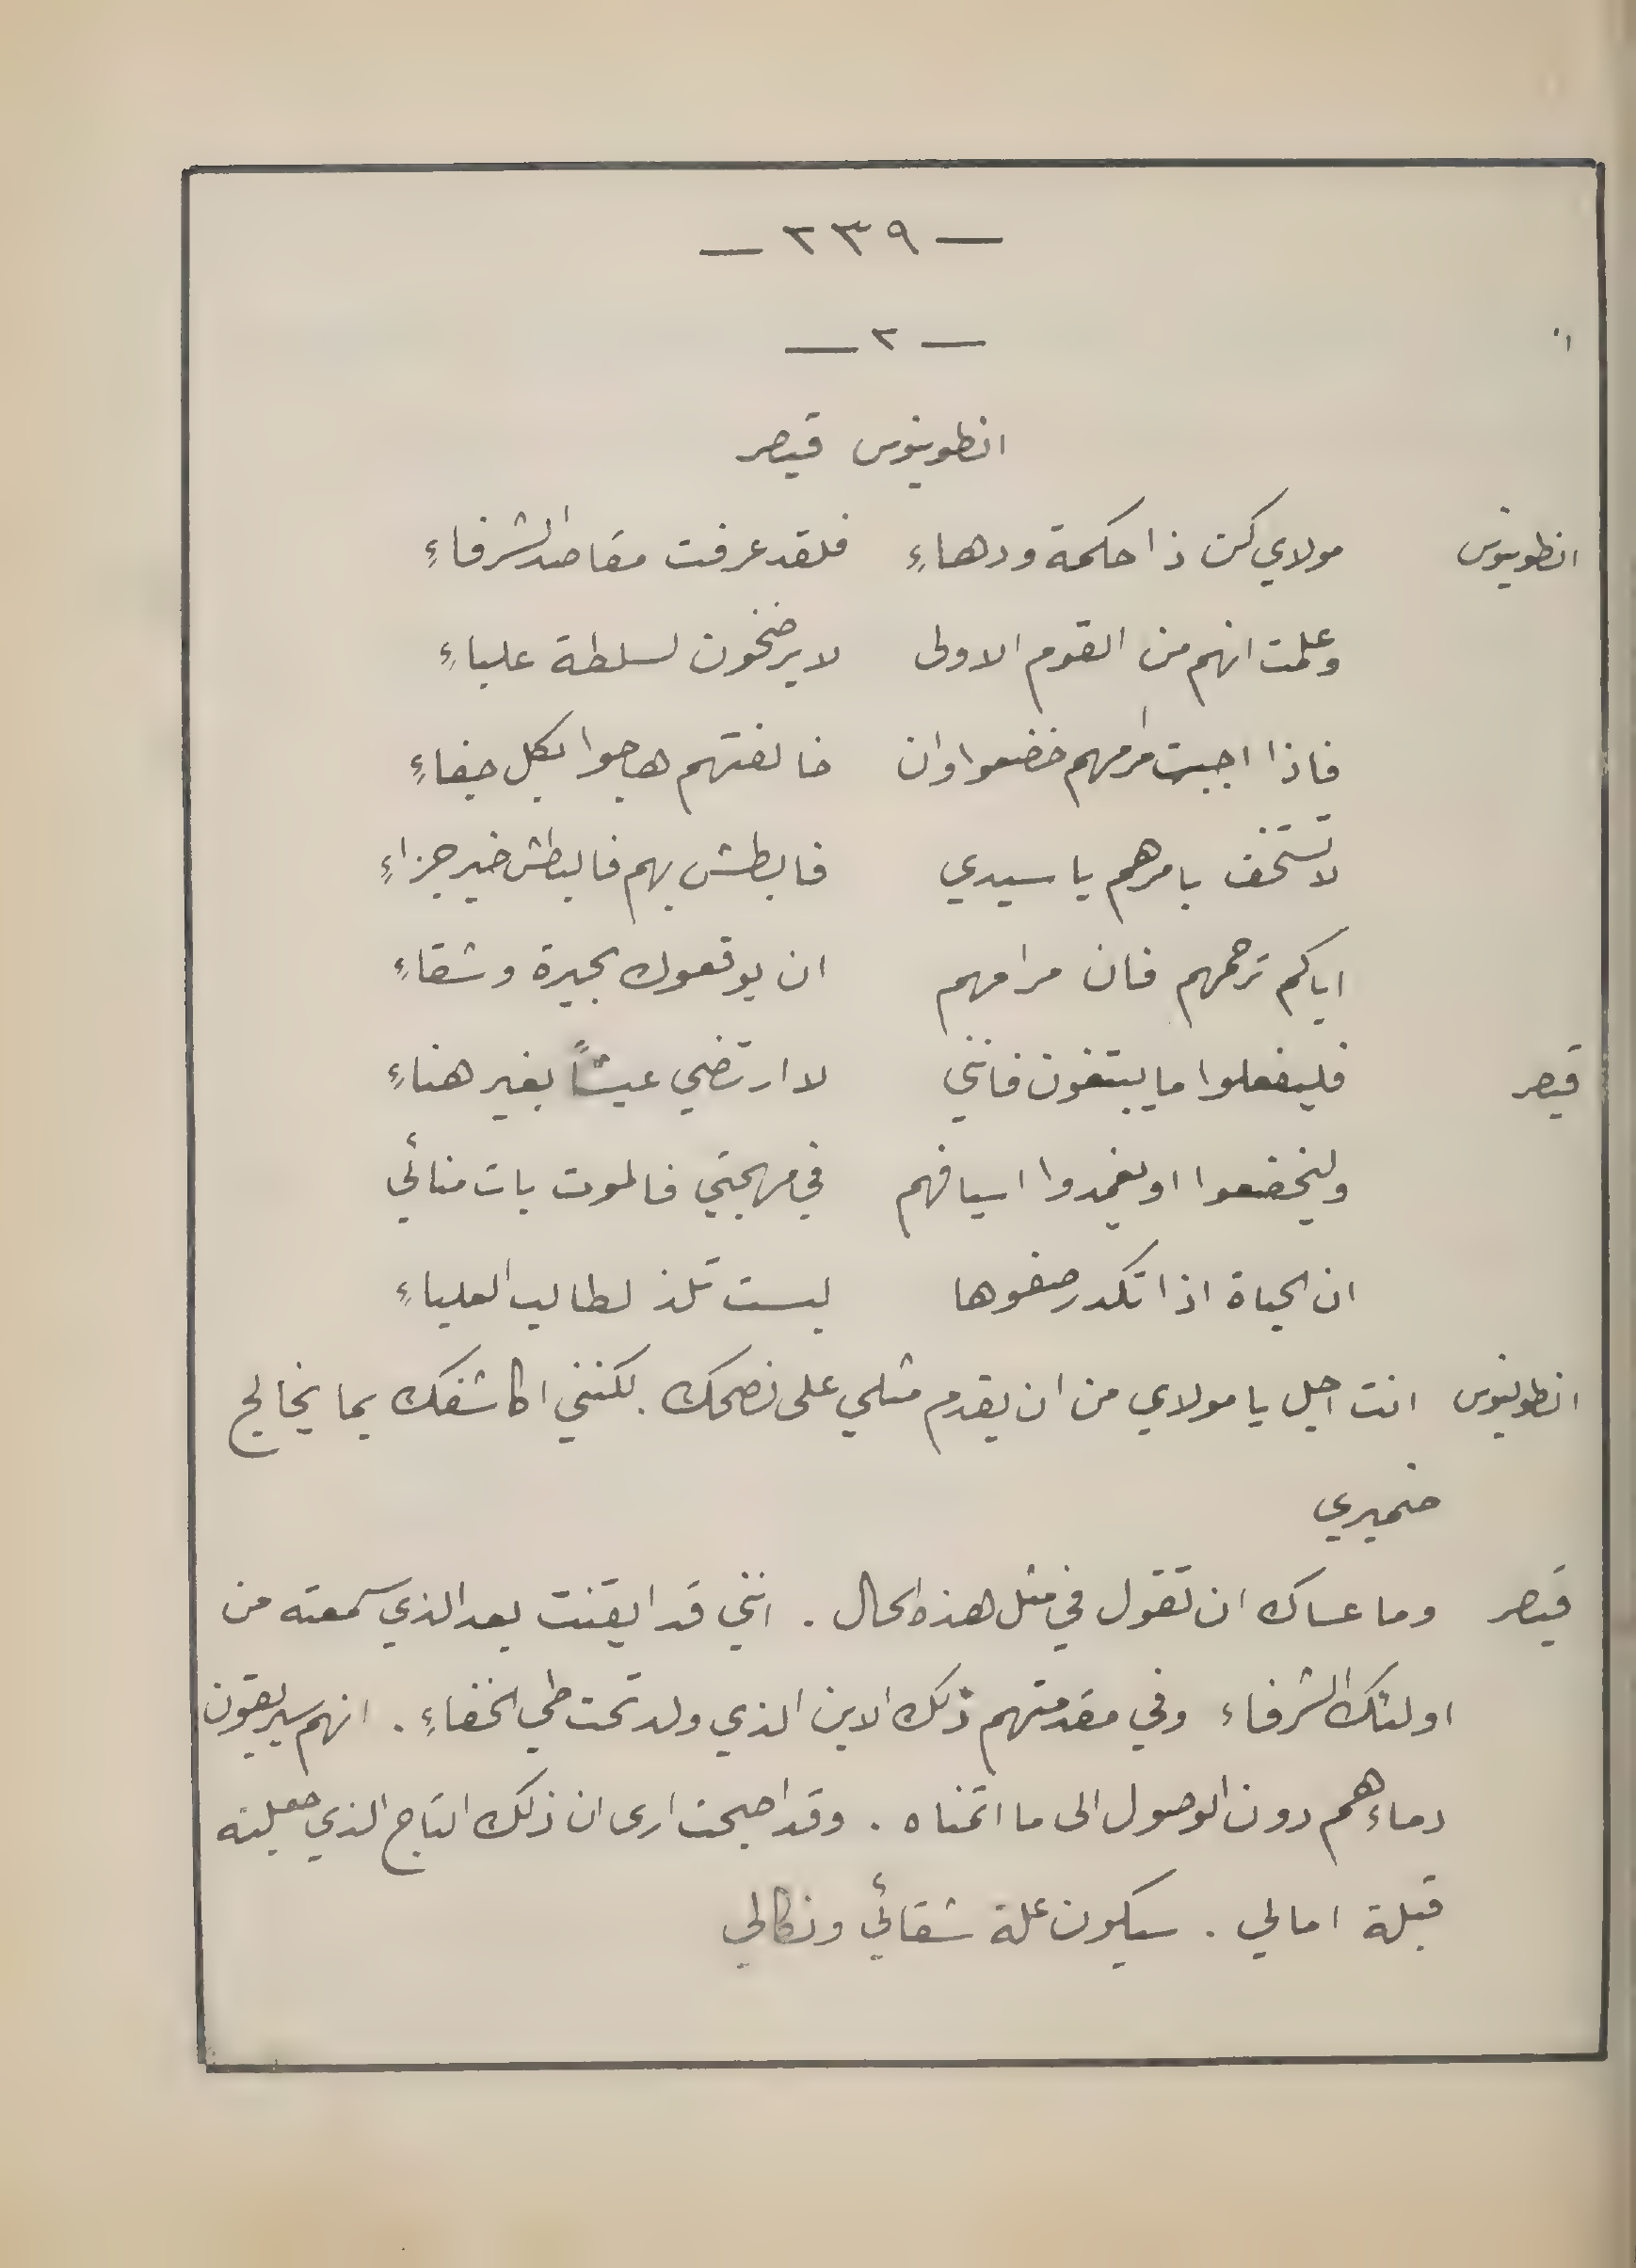 — ٢٣٩ —
— ٢ —
انطونيوس قيصر
انطونيوس مولاي كن ذا حكمة ودهاءٍ فلقد عرفت مقاصد الشرفاءِ
وعلمت انهم من القوم الاولى لا يرضخون لسلطة علياءِ
فاذا اجبت مرامهم خضعوا وان خالفتهم هاجوا بكل جفاءِ
لا تستخف بامرهم يا سيدي فابطش بهم فالبطش خير جزاءِ
اياكم ترحمهم فان مرامهم ان يوقعوك بحيرة وشقاءِ
قيصر فليفعلوا ما يبتغون فانني لا ارتضي عيشاً بغير هناءِ
وليخضعوا او يغمدوا اسيافهم في مهجتي فالموت بات منائي
ان الحياة اذا تكدر صفوها ليست تلذ لطالب العلياءِ
انطونيوس انت اجل يا مولاي من ان يقدم مثلي على نصحك . لكنني اكاشفك بما يخالج
ضميري
قيصر وما عساك ان تقول في مثل هذه الحال . انني قد ايقنت بعد الذي سمعته من
اولئك الشرفاء وفي مقدمتهم ذلك الابن الذي ولد تحت طي الخفاءِ . انهم سيريقون
دماءهم دون الوصول الى ما اتمناه . وقد اصبحت ارى ان ذلك التاج الذي جعلته
قبلة امالي . سيكون علة شقائي ونكالي